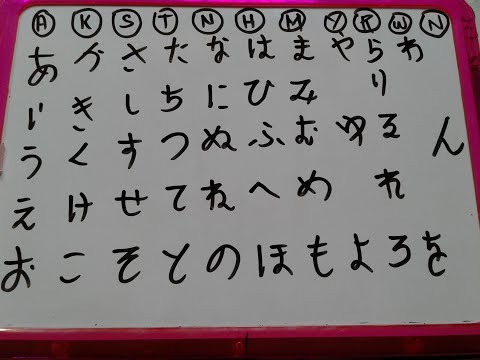 A K S T N H M Y R W N
あ か さ た な は ま や ら わ
い き し ち に ひ み り
う く す つ ぬ ふ む ゆ る ん
え け せ て ね へ め れ
お こ そ と の ほ も よ ろ を